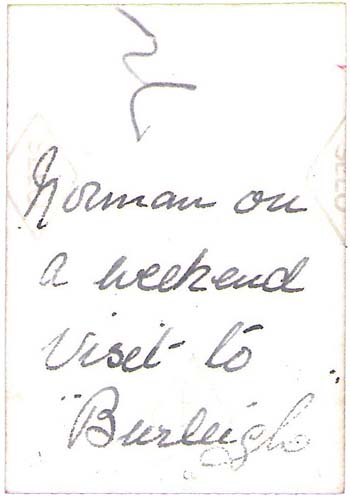 Norman on
a weekend
visit to
"Burleigh"